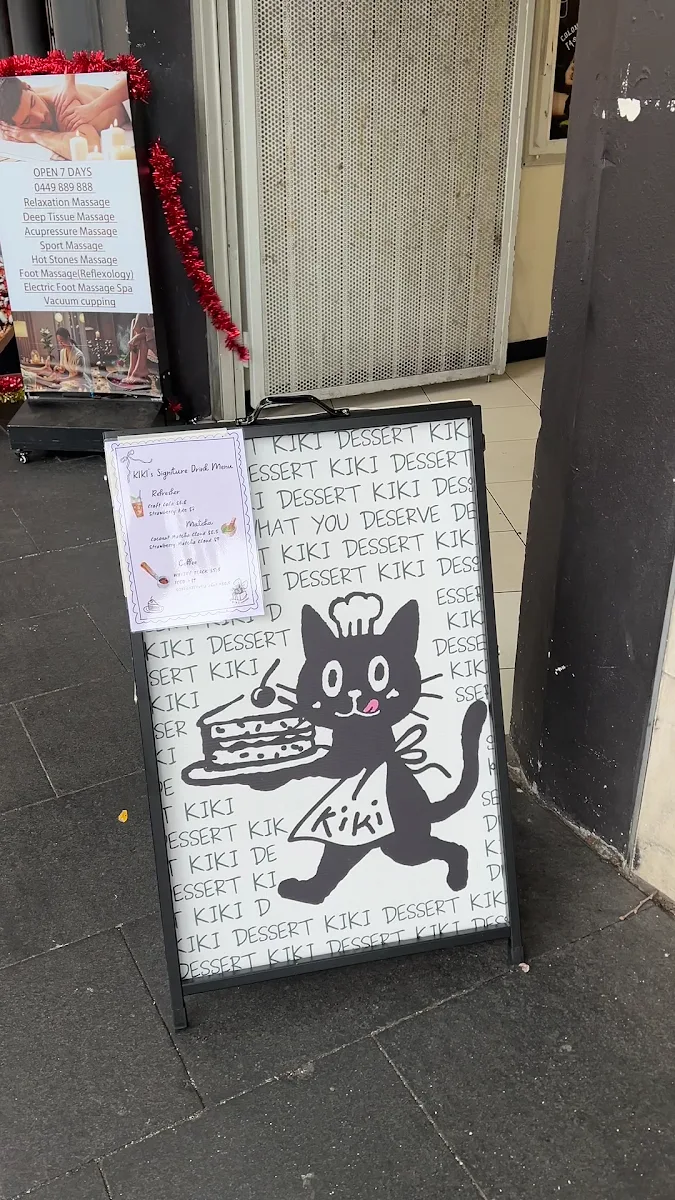 OPEN 7 DAYS
0449 889 888
Relaxation Massage
Deep Tissue Massage
Acupressure Massage
Sport Massage
Hot Stones Massage
Foot Massage(Reflexology)
Electric Foot Massage Spa
Vacuum cupping
KIKI's Signature Drink Menu
Refresher
Strawberry
Matcha
Coconut Matcha Cloud
Strawberry Matcha Cloud
Coffee
KIKI DESSERT KIK
ESSERT KIKI DESSERT
I DESSERT KIKI DESS
WHAT YOU DESERVE DE
T KIKI DESSERT KIKI
DESSERT KIKI DESS
ESSE
D
KIK
KIKI DESSERT
DESSE
SERT KIKI
KIK
KIKI
SSE
SER
KI
DE
kiki
T KIKI
SE
ESSERT KIK
D
T KIKI DE
K
ESSERT KI
D
T KIKI D
KIKI DESSERT KIKI DESSERT KIKI
DESSERT KIKI DESSERT KIKI DESS